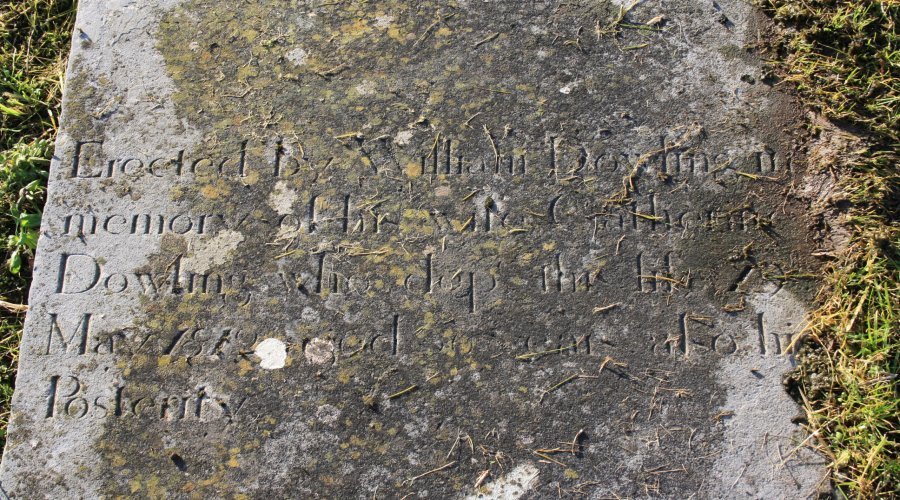 Erected by William Dowling in
memory of his wife Catherine
Dowling who dep this life 19
May 1812 aged years also his
Posterity